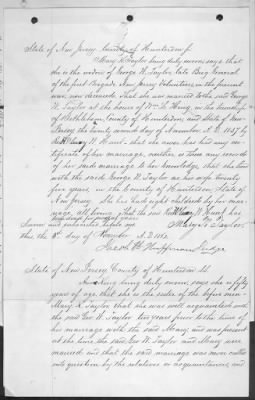 State of New Jersey County of Hunterdon ss
Mary Taylor being duly sworn says that
she is the widow of George W. Taylor late Brig General
of the first Brigade New Jersey Volunteers in the present
war, now deceased. That she was married to the said George
W. Taylor at the house of Wm. in the township
of Bethlehem, County of Hunterdon and State of New
Jersey the twenty second day of November A. D. 1837 by
Hunt - that she never has had any cer-
tificate of her marriage, neither is there any record
of her said marriage to her knowledge, that she lived
with the said George W. Taylor as his wife twenty
five years, in the County of Hunterdon State of
New Jersey. She has had eight children by her mar-
riage, all living, that the said Hunt has
been dead for years
Sworn and subscribed before me Mary Taylor
this day of November A. D. 1862
Jacob Huffman Judge
State of New Jersey County of Hunterdon ss
King being duly sworn, says she is fifty
years of age that she is the sister of the before men
Mary Taylor, that she was well acquainted with
the said Geo. W. Taylor ten years prior to the time of
his marriage with the said Mary, and was present
at the time the said Geo. W. Taylor and Mary were
married and that the said marriage was never called
into question by the relations or acquaintances, and